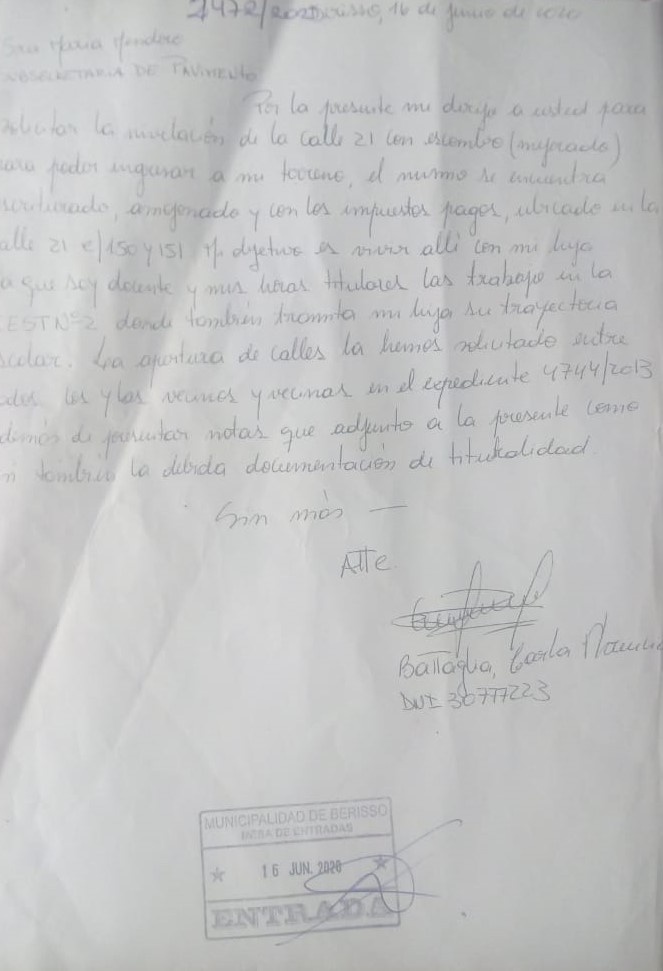 2472/2020 Berisso, 16 de junio de 2020
Sra María
SUBSECRETARIA DE PAVIMENTO
Por la presente me dirijo a usted para
solicitar la nivelación de la calle 21 con escombro (mejorado)
para poder ingresar a mi terreno, el mismo se encuentra
escriturado, amojonado y con los impuestos pagos, ubicado en la
calle 21 e/150 y 151 Mi objetivo es vivir allí con mi hija
ya que soy docente y mis horas titulares las trabajo en la
EEST Nº2 donde también transita mi hija su trayectoria
escolar. La apertura de calles la hemos solicitado entre
todos los y las vecinos y vecinas en el expediente 4744/2013
además de presentar notas que adjunto a la presente como
así también la debida documentación de titularidad
Sin más —
Atte
Battaglia, Carla
DNI 30777223
MUNICIPALIDAD DE BERISSO
MESA DE ENTRADAS
★ 16 JUN. 2020 ★
ENTRADA